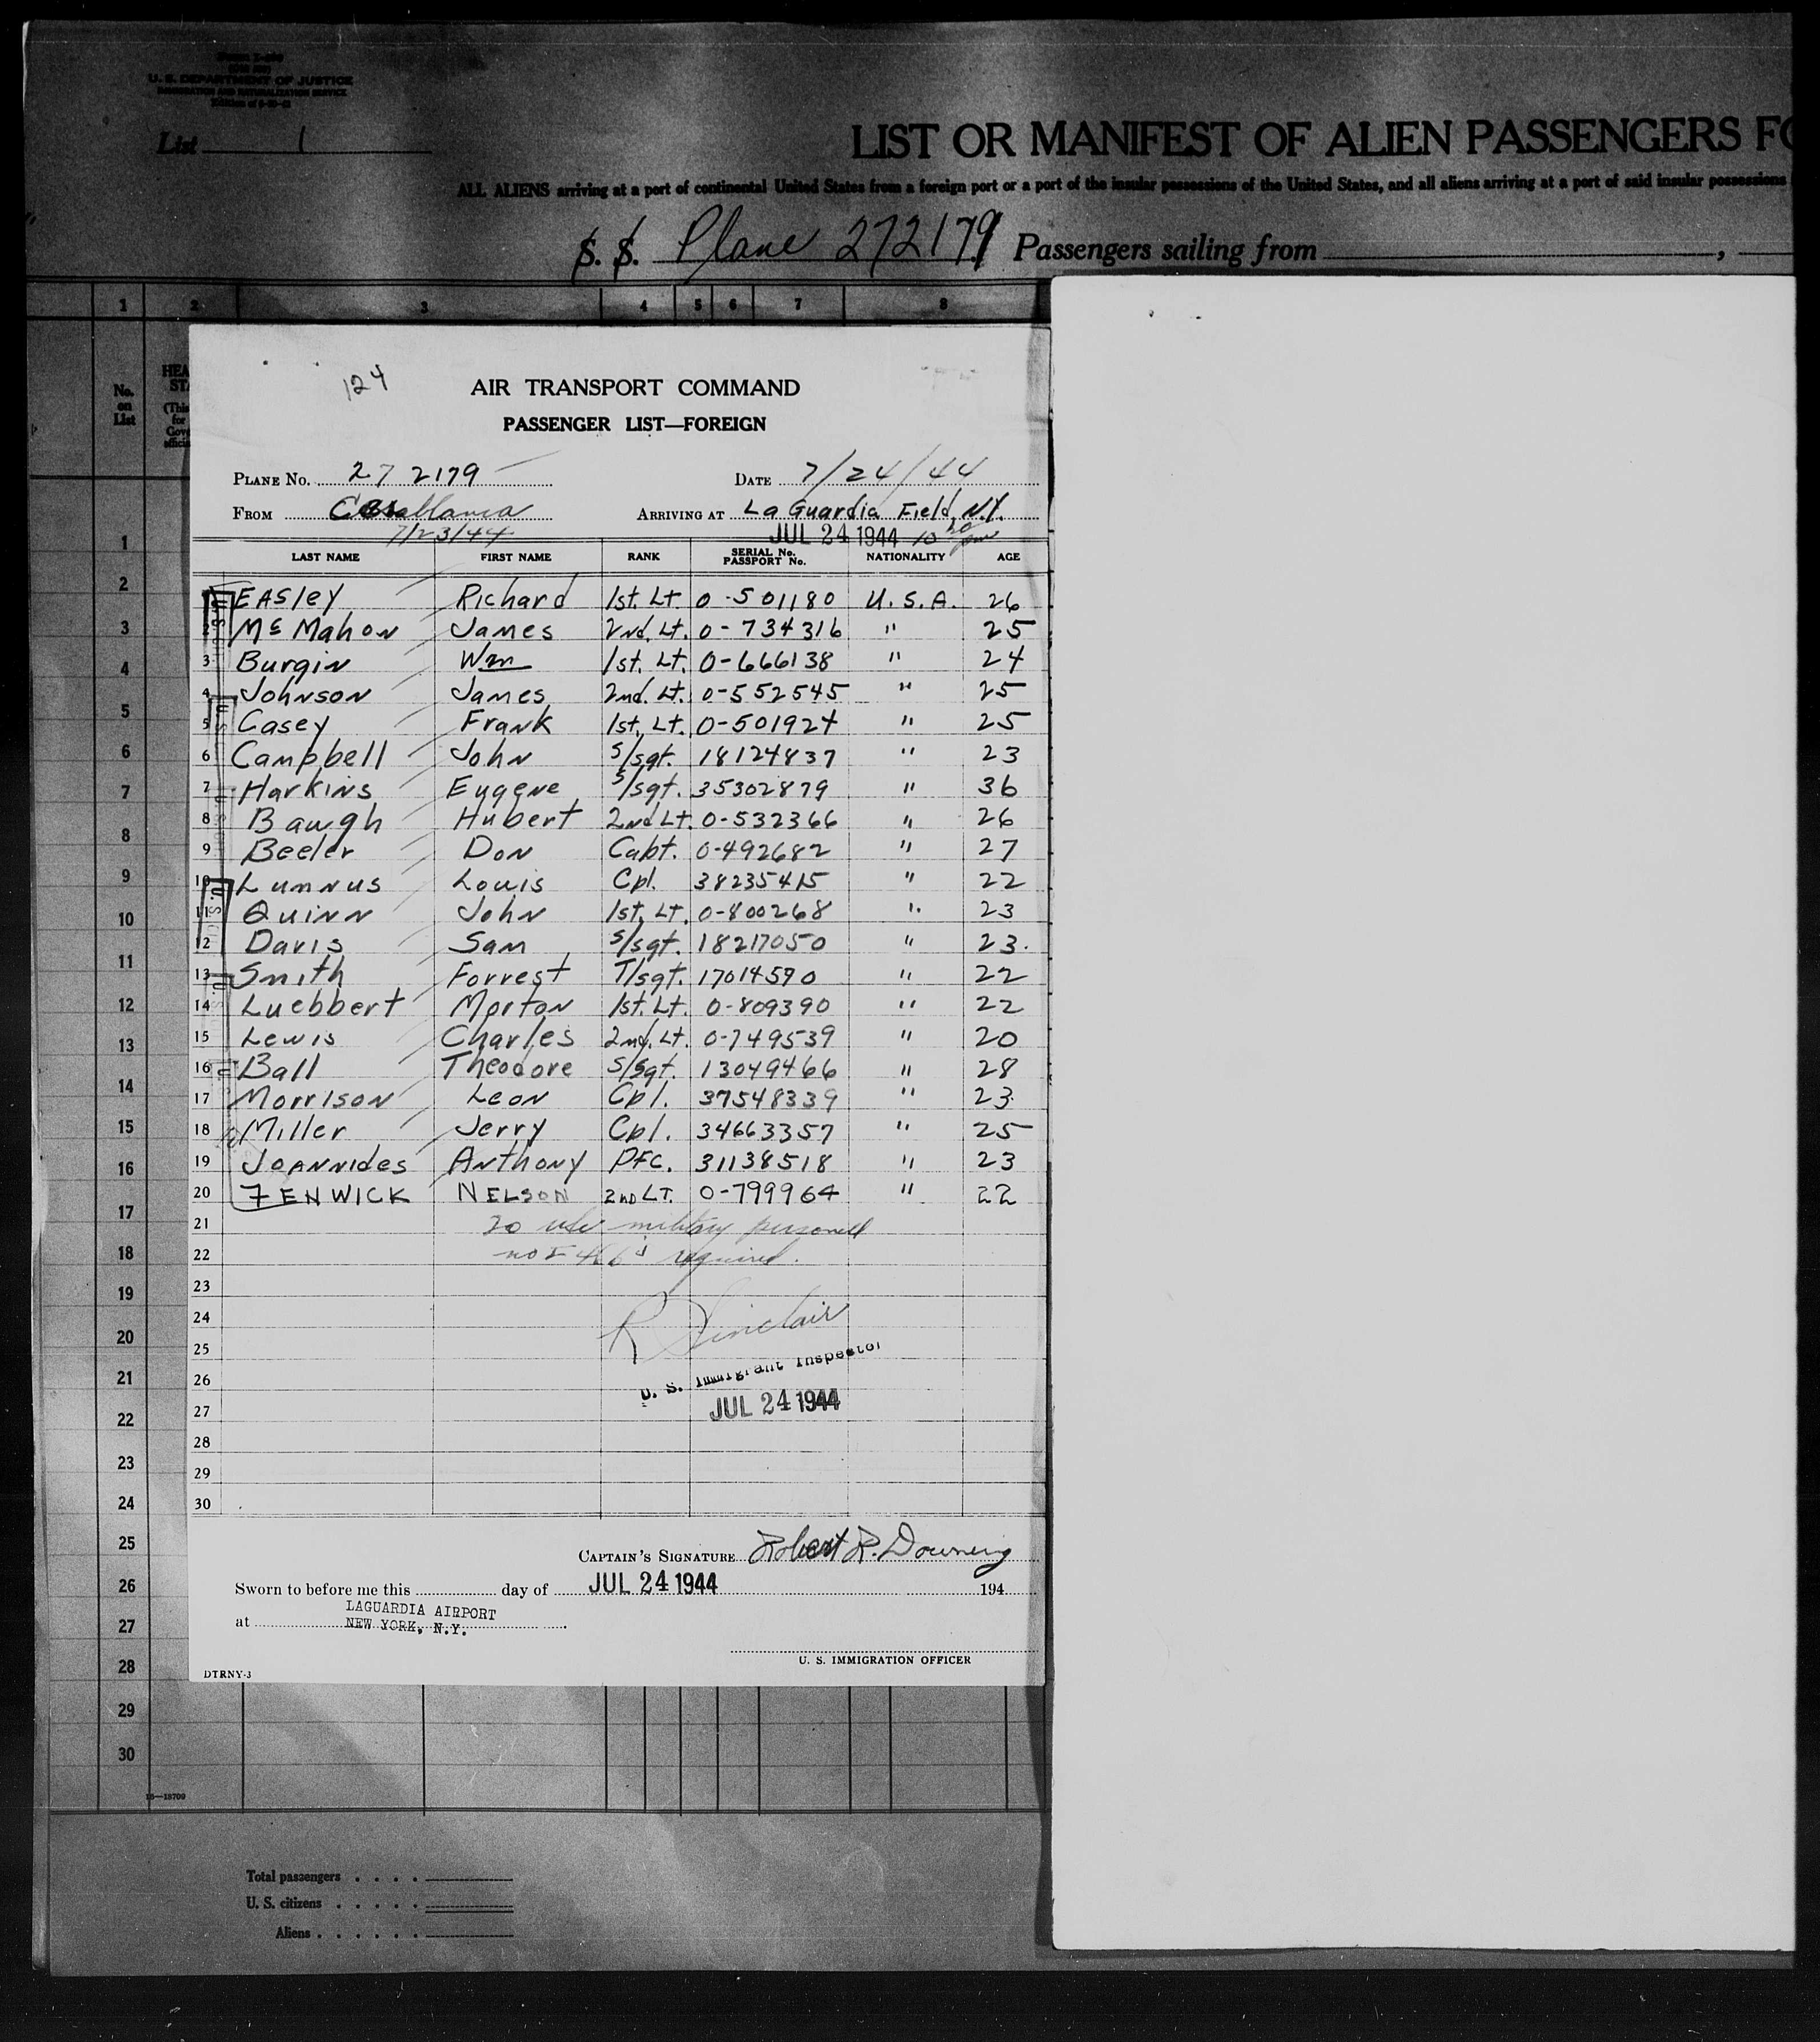 U. S. DEPARTMENT OF JUSTICE
IMMIGRATION AND NATURALIZATION SERVICE
List 1
LIST OR MANIFEST OF ALIEN PASSENGERS FO
ALL ALIENS arriving at a port of continental United States from a foreign port or a port of the insular possessions of the United States, and all aliens arriving at a port of said insular possessions
S. S. Plane 272179 Passengers sailing from
1 2 3 4 5 6 7 8
No. on List
124
AIR TRANSPORT COMMAND
PASSENGER LIST—FOREIGN
PLANE NO. 27 2179 DATE 7/24/44
FROM Casablanca ARRIVING AT La Guardia Field, N.Y.
7/23/44 JUL 24 1944 10 20 pm
LAST NAME FIRST NAME RANK SERIAL No. PASSPORT No. NATIONALITY AGE
EASley Richard 1st. Lt. 0-501180 U. S. A. 26
2 McMahon James 2nd. Lt. 0-734316 " 25
3 Burgin Wm 1st. Lt. 0-666138 " 24
4 Johnson James 2nd. Lt. 0-552545 " 25
5 Casey Frank 1st. Lt. 0-501924 " 25
6 Campbell John S/sgt. 18124837 " 23
7 Harkins Eugene S/sgt. 35302879 " 36
8 Baugh Hubert 2nd Lt. 0-532366 " 26
9 Beeler Don Capt. 0-492682 " 27
10 Lumnus Louis Cpl. 38235415 " 22
11 Quinn John 1st. Lt. 0-800268 " 23
12 Davis Sam S/sgt. 18217050 " 23.
13 Smith Forrest T/sgt. 17014590 " 22
14 Luebbert Morton 1st. Lt. 0-809390 " 22
15 Lewis Charles 2nd. Lt. 0-749539 " 20
16 Ball Theodore S/Sgt. 13049466 " 28
17 Morrison Leon Cpl. 37548339 " 23
18 Miller Jerry Cpl. 34663357 " 25
19 Joannides Anthony PFC. 31138518 " 23
20 FENWICK NELSON 2ND LT. 0-799964 " 22
21 20 military personell
22 no I 466's required.
23
24 R Sinclair
25
26 U. S. Immigrant Inspector
27 JUL 24 1944
28
29
30
CAPTAIN'S SIGNATURE Robert R. Downing
Sworn to before me this day of JUL 24 1944 194
LAGUARDIA AIRPORT
at NEW YORK, N.Y.
U. S. IMMIGRATION OFFICER
DTRNY-3
1
2
3
4
5
6
7
8
9
10
11
12
13
14
15
16
17
18
19
20
21
22
23
24
25
26
27
28
29
30
16—18709
Total passengers . . . .
U. S. citizens . . . . .
Aliens . . . . . .